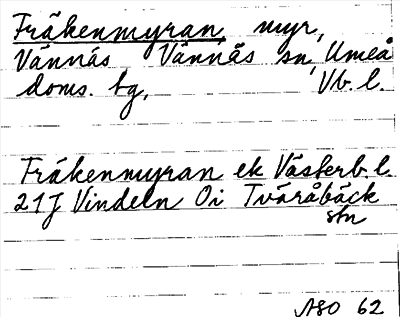 Fräkenmyran, myr,
Vännäs Vännäs sn, Umeå
doms. tg, Vb. l.
Fräkenmyran ek Västerb. l
21J Vindeln Oi Tväråbäck
stn
ASO 62